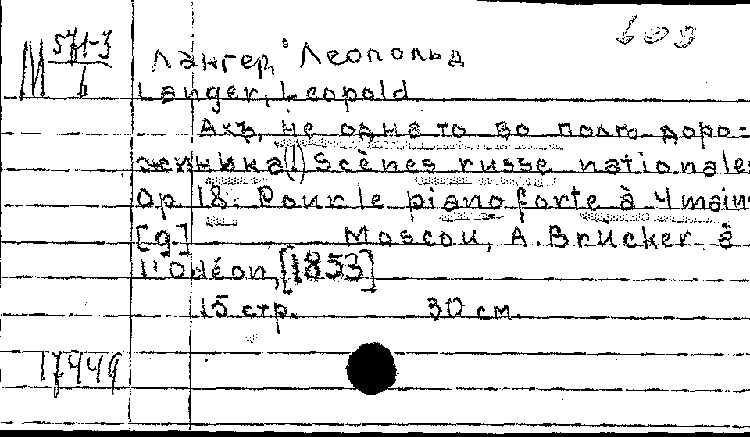 М 571-3
I
Лангер, Леопольд
Langer, Leopold
Ахъ, не одна то во полѣ доро=
жинька(!) Scènes russe nationales
Op 18. Pour le piano forte à 4 mains
[g.] Moscou, A. Brucker à
l'Odéon, [1853]
15 стр. 30 см.
17949